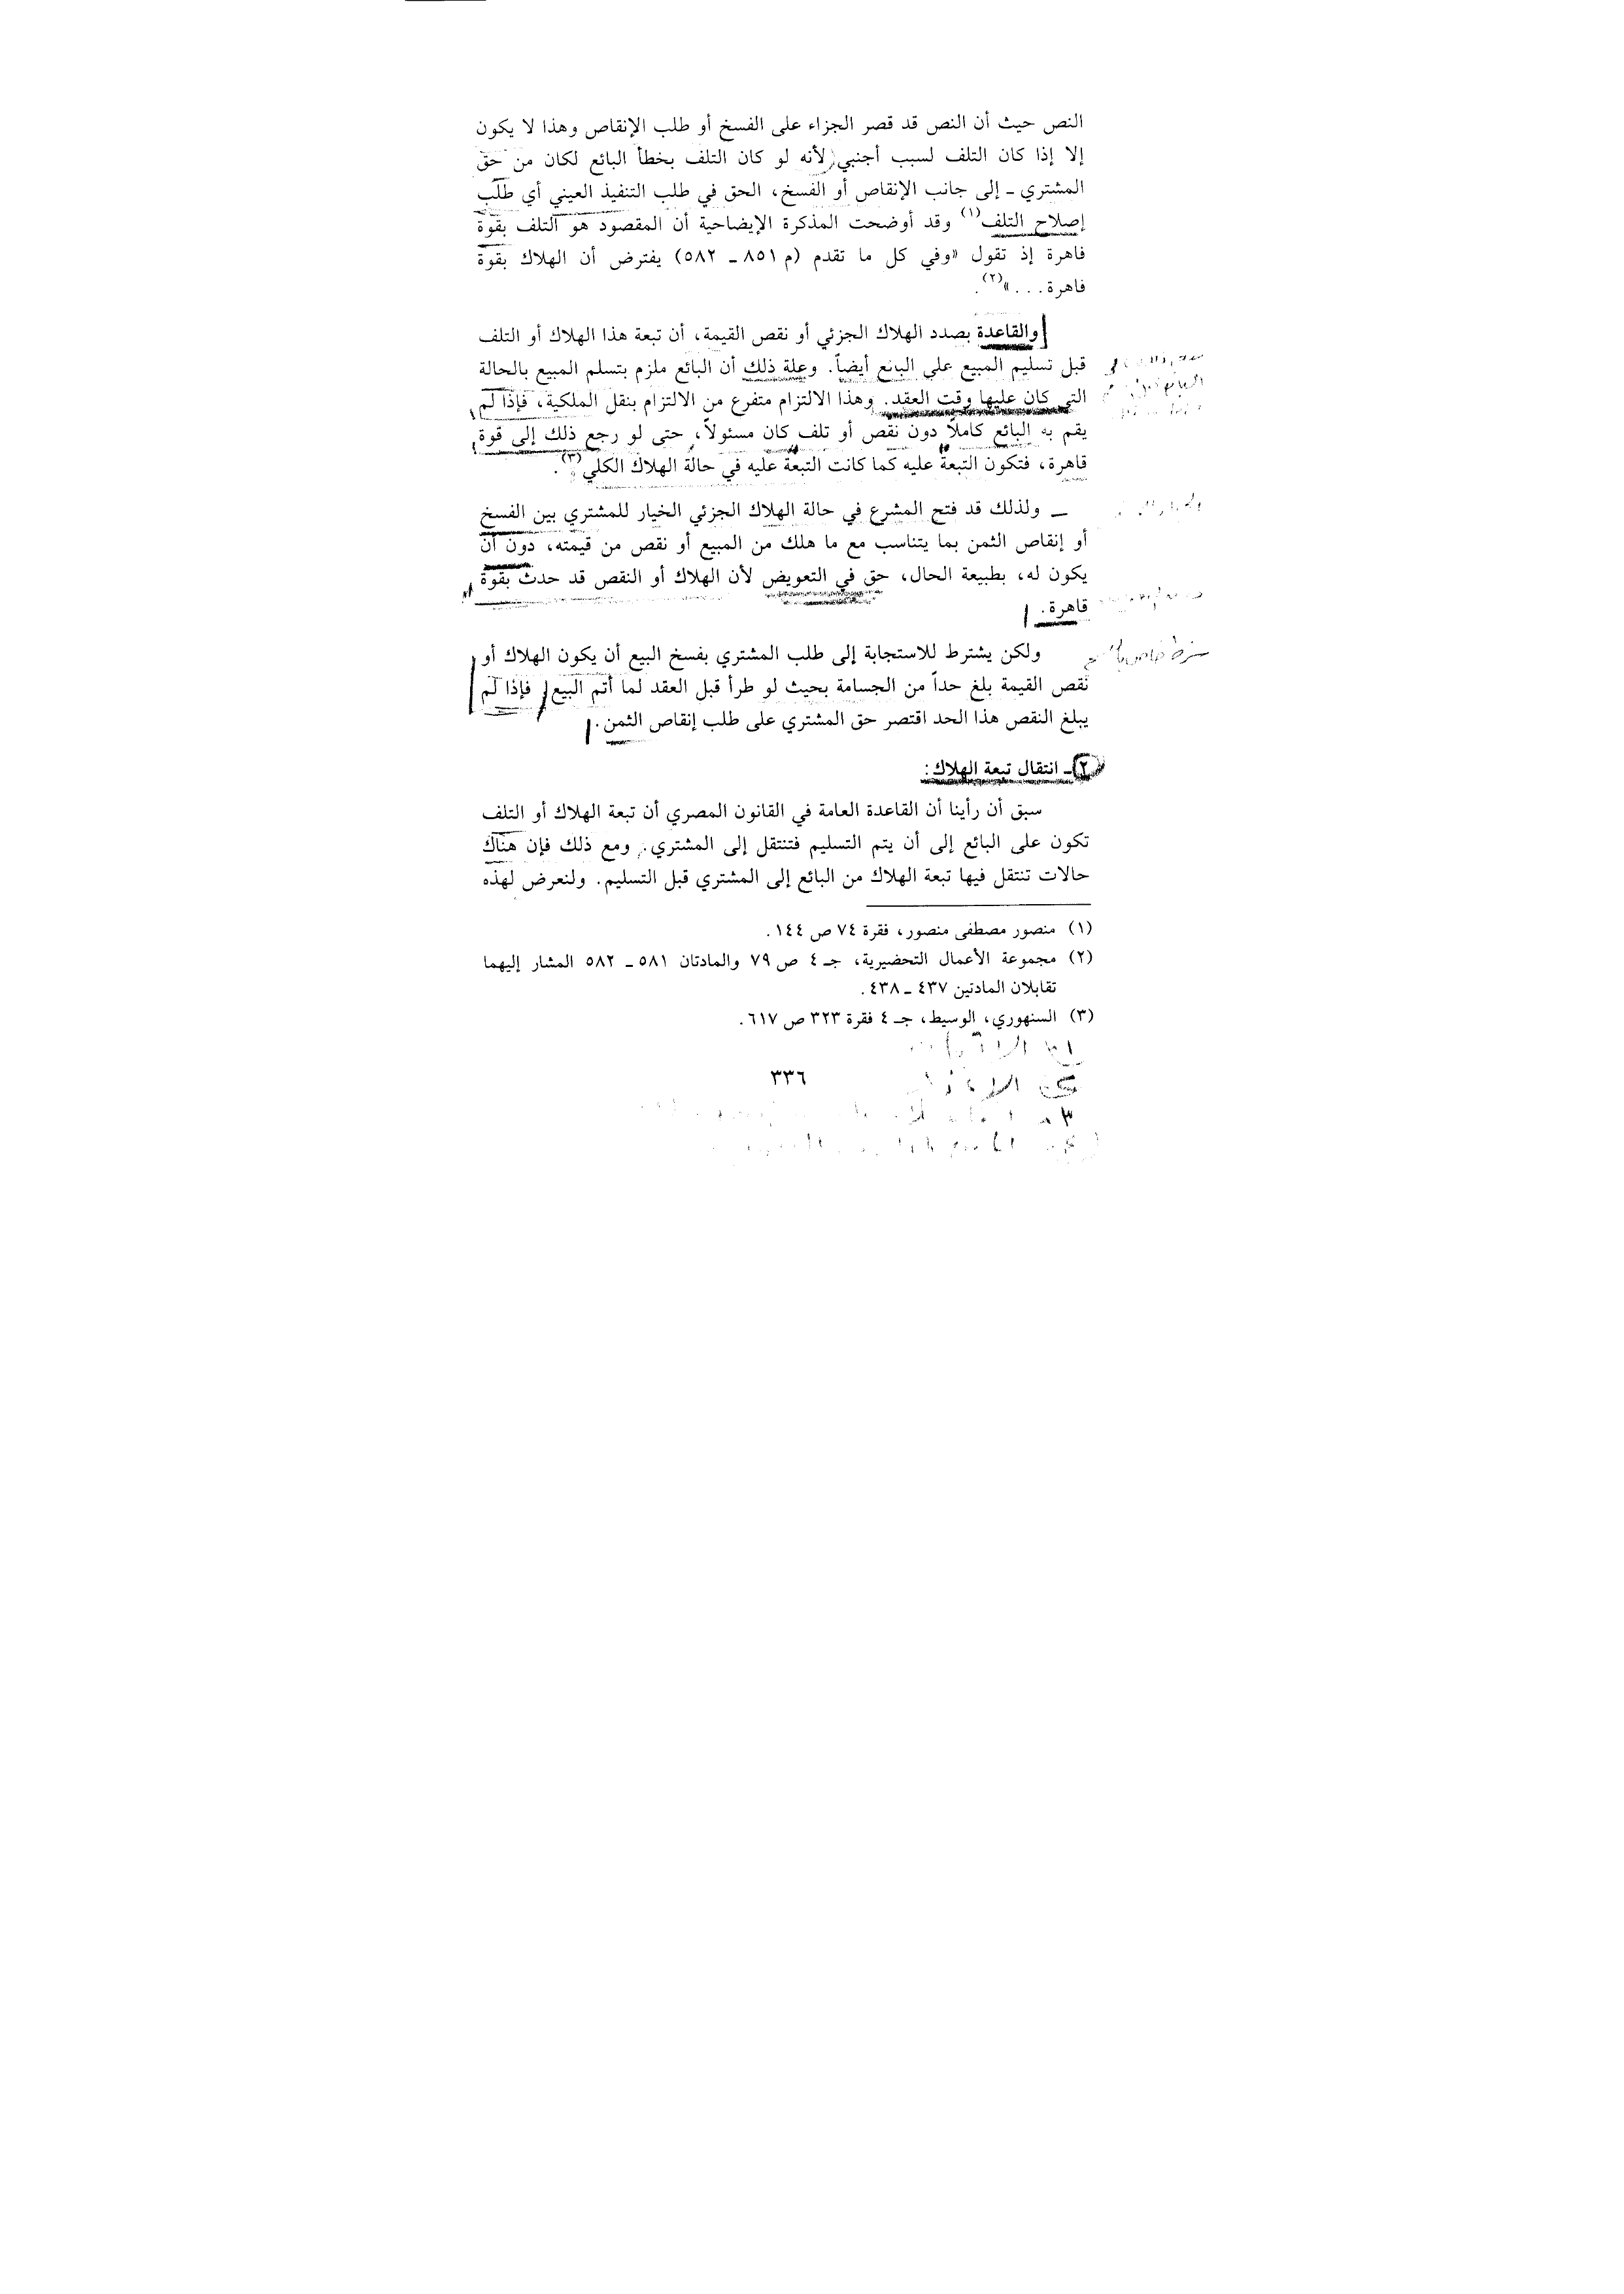 النص حيث أن النص قد قصر الجزاء على الفسخ أو طلب الإنقاص وهذا لا يكون
إلا إذا كان التلف لسبب أجنبي لأنه لو كان التلف بخطأ البائع لكان من حق
المشتري ـ إلى جانب الإنقاص أو الفسخ، الحق في طلب التنفيذ العيني أي طلب
إصلاح التلف(١) وقد أوضحت المذكرة الإيضاحية أن المقصود هو التلف بقوة
قاهرة إذ تقول «وفي كل ما تقدم (م ٨٥١ ـ ٥٨٢) يفترض أن الهلاك بقوة
قاهرة...»(٢).
والقاعدة بصدد الهلاك الجزئي أو نقص القيمة، أن تبعة هذا الهلاك أو التلف
قبل تسليم المبيع على البائع أيضاً. وعلة ذلك أن البائع ملزم بتسلم المبيع بالحالة
التي كان عليها وقت العقد. وهذا الالتزام متفرع من الالتزام بنقل الملكية، فإذا لم
يقم به البائع كاملاً دون نقص أو تلف كان مسئولاً، حتى لو رجع ذلك إلى قوة
قاهرة، فتكون التبعة عليه كما كانت التبعة عليه في حالة الهلاك الكلي(٣).
ـ ولذلك قد فتح المشرع في حالة الهلاك الجزئي الخيار للمشتري بين الفسخ
أو إنقاص الثمن بما يتناسب مع ما هلك من المبيع أو نقص من قيمته، دون أن
يكون له، بطبيعة الحال، حق في التعويض لأن الهلاك أو النقص قد حدث بقوة
قاهرة.
ولكن يشترط للاستجابة إلى طلب المشتري بفسخ البيع أن يكون الهلاك أو
نقص القيمة بلغ حداً من الجسامة بحيث لو طرأ قبل العقد لما أتم البيع، فإذا لم
يبلغ النقص هذا الحد اقتصر حق المشتري على طلب إنقاص الثمن.
٢ ـ انتقال تبعة الهلاك:
سبق أن رأينا أن القاعدة العامة في القانون المصري أن تبعة الهلاك أو التلف
تكون على البائع إلى أن يتم التسليم فتنتقل إلى المشتري. ومع ذلك فإن هناك
حالات تنتقل فيها تبعة الهلاك من البائع إلى المشتري قبل التسليم. ولنعرض لهذه
(١) منصور مصطفى منصور، فقرة ٧٤ ص ١٤٤.
(٢) مجموعة الأعمال التحضيرية، جـ ٤ ص ٧٩ والمادتان ٥٨١ ـ ٥٨٢ المشار إليهما
تقابلان المادتين ٤٣٧ ـ ٤٣٨.
(٣) السنهوري، الوسيط، جـ ٤ فقرة ٣٢٣ ص ٦١٧.
٣٣٦